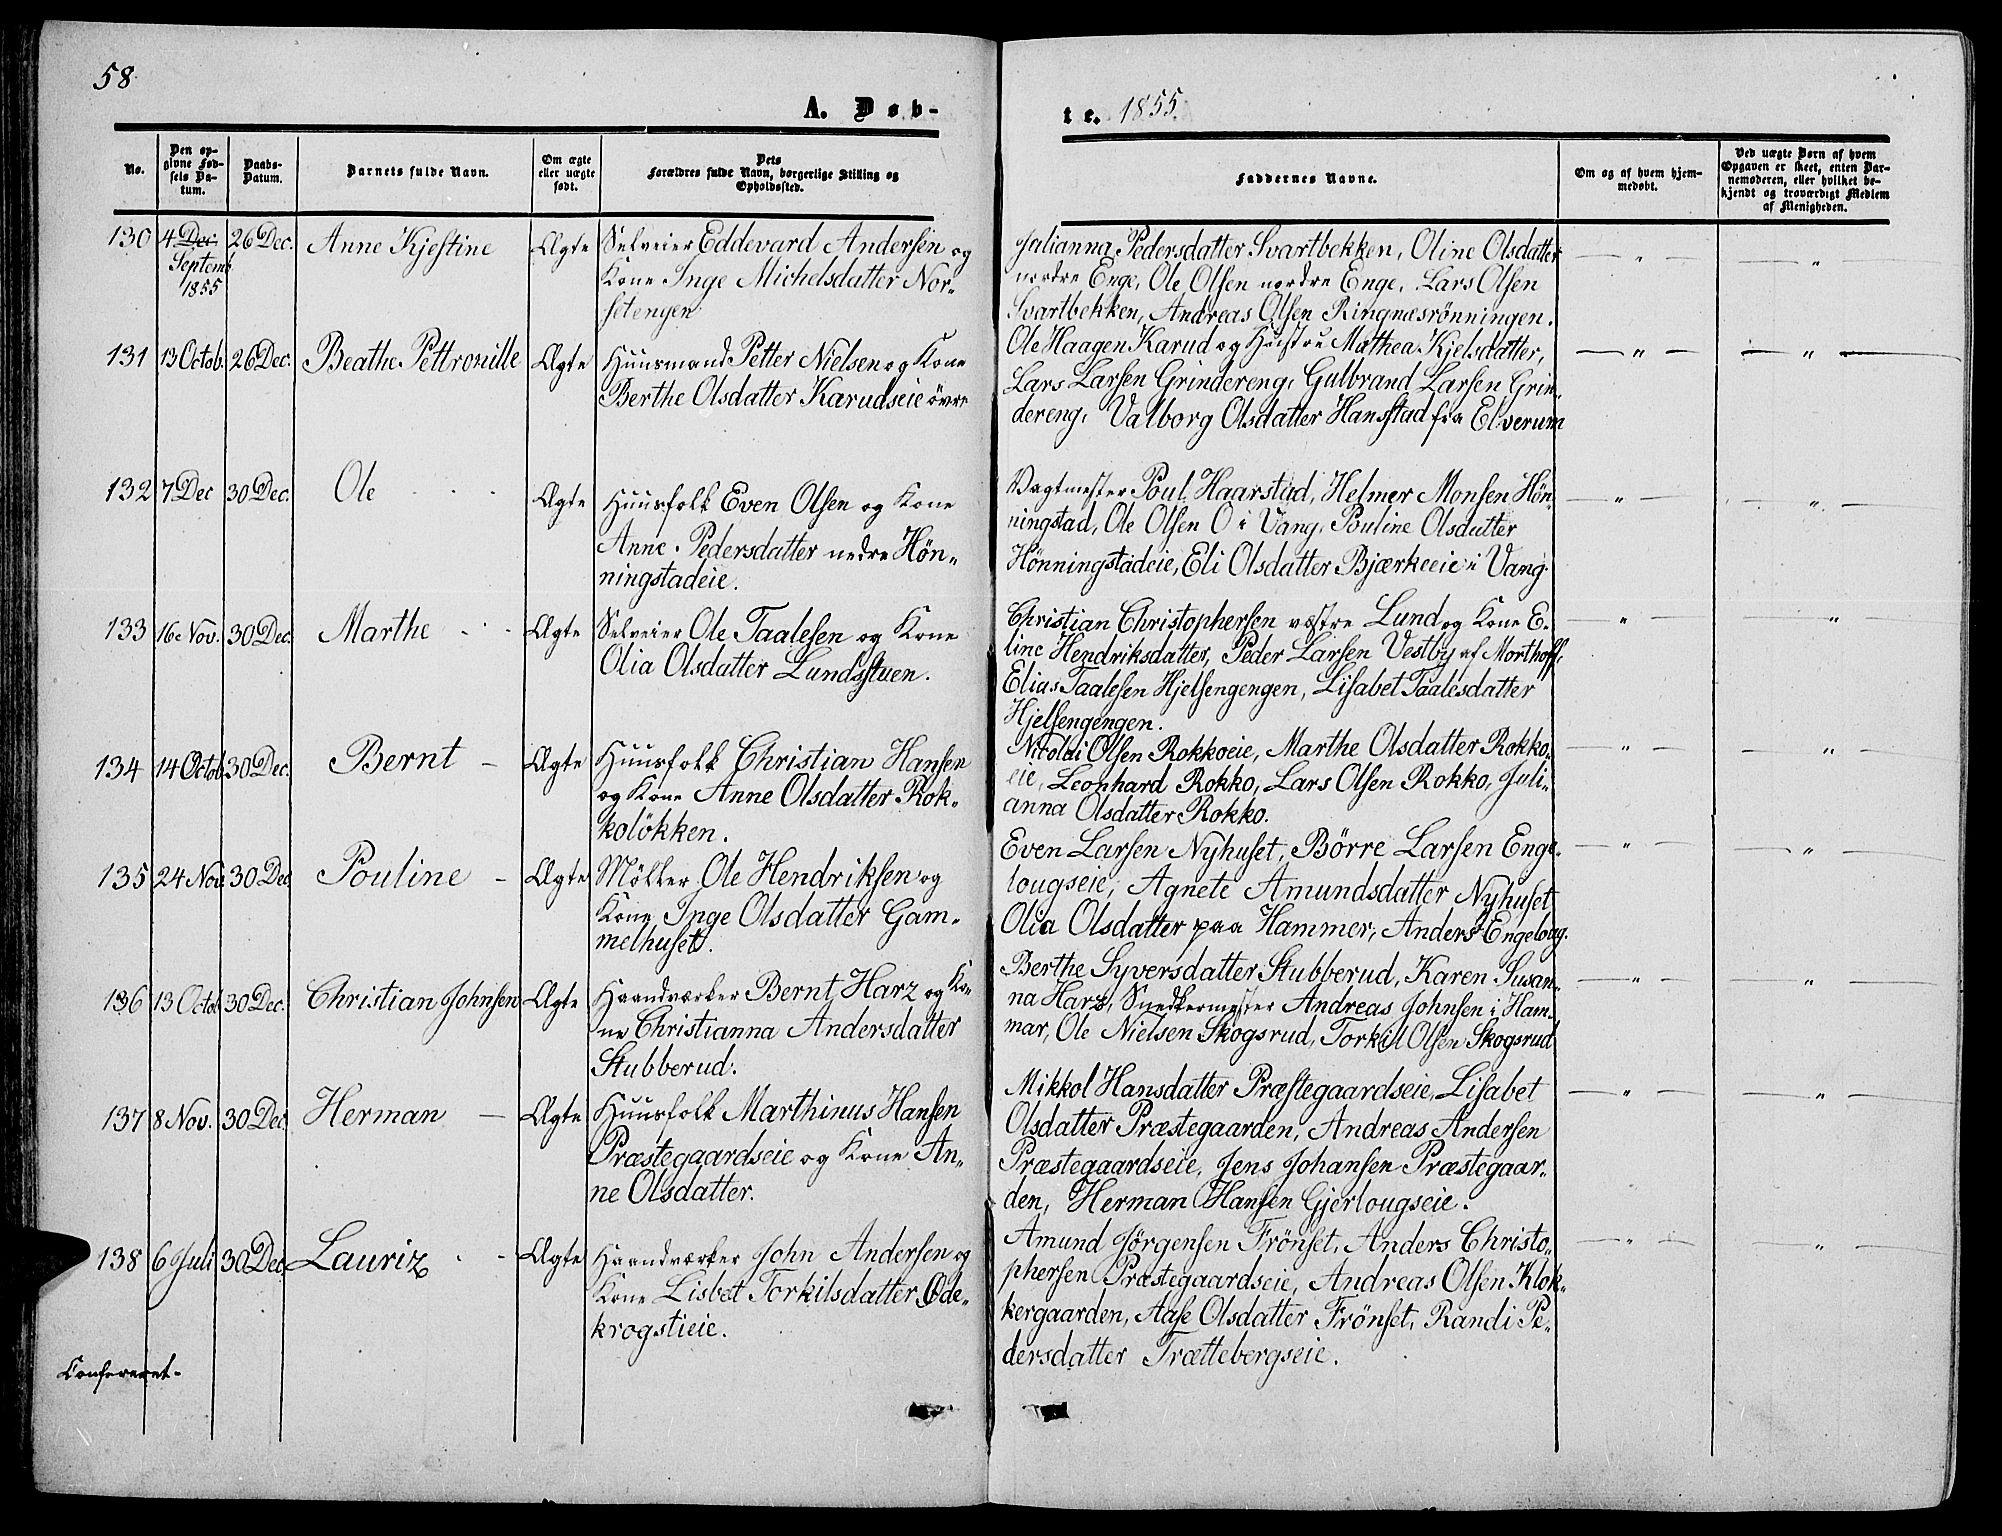 58
A. Døb-
te. 1855.
No.
Den op-
givne Fød-
sels Da-
tum.
Daabs-
Datum.
Barnets fulde Navn.
Om ægte
eller uægte
født.
Dets
Forældres fulde Navn, borgerlige Stilling og
Opholdssted.
Faddernes Navne.
Om og af hvem hjem-
medøbt.
Ved uægte Børn af hvem
Opgaven er skeet, enten Bar-
nemoderen, eller hvilket be-
kjendt og troværdigt Medlem
af Menigheden.
130 4 Dec. 26 Dec. Anne Kjestine Ægte Selveier Eddevard Andersen og
Septemb.
1855
Kone Inge Michelsdatter Nor-
setengen
Julianna Pedersdatter Svartbekken, Oline Olsdatter
nordre Enge, Ole Olsen nordre Enge, Lars Olsen
Svartbekken, Andreas Olsen Ringnæsrønningen.
131 13 Octob. 26 Dec. Beathe Pettronille Ægte Huusmand Petter Nielsen og Kone
Berthe Olsdatter Karudseie övre
Ole Haagen Karud og Hustru Mathea Kjelsdatter,
Lars Larsen Grindereng, Gulbrand Larsen Grin-
dereng, Valborg Olsdatter Hansstad fra Elverum
132 7 Dec 30 Dec. Ole Ægte Huusfolk Even Olsen og Kone
Anne Pedersdatter nedre Hön-
ningstadeie.
Vagtmester Poul Haarstad, Helmer Monsen Hön-
ningstad, Ole Olsen O i Vang, Pouline Olsdatter
Hönningstadeie, Eli Olsdatter Bjærkeeie i Vang
133 16 Nov. 30 Dec. Marthe Ægte Selveier Ole Taalesen og Kone
Olia Olsdatter Lundsstuen.
Christian Christophersen vestre Lund og Kone E-
line Hendriksdatter, Peder Larsen Vestby af Morthoff,
Elias Taalesen Hjelsengengen, Lisabet Taalesdatter
Hjelsengengen.
134 14 Octob. 30 Dec. Bernt Ægte Huusfolk Christian Hansen
og Kone Anne Olsdatter Rok-
kolökken.
Nicolai Olsen Rokkoeie, Marthe Olsdatter Rokko-
eie, Leonhard Rokko, Lars Olsen Rokko, Juli-
anna Olsdatter Rokko.
135 24 Nov. 30 Dec. Pouline Ægte Møller Ole Hendriksen og
Kone Inge Olsdatter Gam-
melhuset.
Even Larsen Nyhuset, Börre Larsen Enge-
lougseie, Agnete Amundsdatter Nyhuset
Olia Olsdatter paa Hammer, Anders Engeloug.
136 13 Octob. 30 Dec. Christian Johnsen Ægte Haandværker Bernt Harz og Ko-
ne Christianna Andersdatter
Stubberud.
Berthe Syversdatter Stubberud, Karen Susan-
na Harz, Snedkermester Andreas Johnsen i Ham-
mar, Ole Nielsen Skogsrud, Torkil Olsen Skogsrud
137 8 Nov. 30 Dec. Herman Ægte Huusfolk Marthinus Hansen
Præstegaardseie og Kone An-
ne Olsdatter.
Mikkol Hansdatter Præstegaardseie, Lisabet
Olsdatter Præstegaarden, Andreas Andersen
Præstegaardseie, Jens Johansen Præstegaar-
den, Herman Hansen Gjerlougseie.
138 6 Juli 30 Dec. Lauriz Ægte Haandværker John Andersen og
Kone Lisbet Torkilsdatter Öde-
krogstieie.
Amund Jörgensen Frönset, Anders Christo-
phersen Præstegaardseie, Andreas Olsen Klok-
kergaarden, Aase Olsdatter Frönset, Randi Pe-
dersdatter Trættebergseie.
Confereret